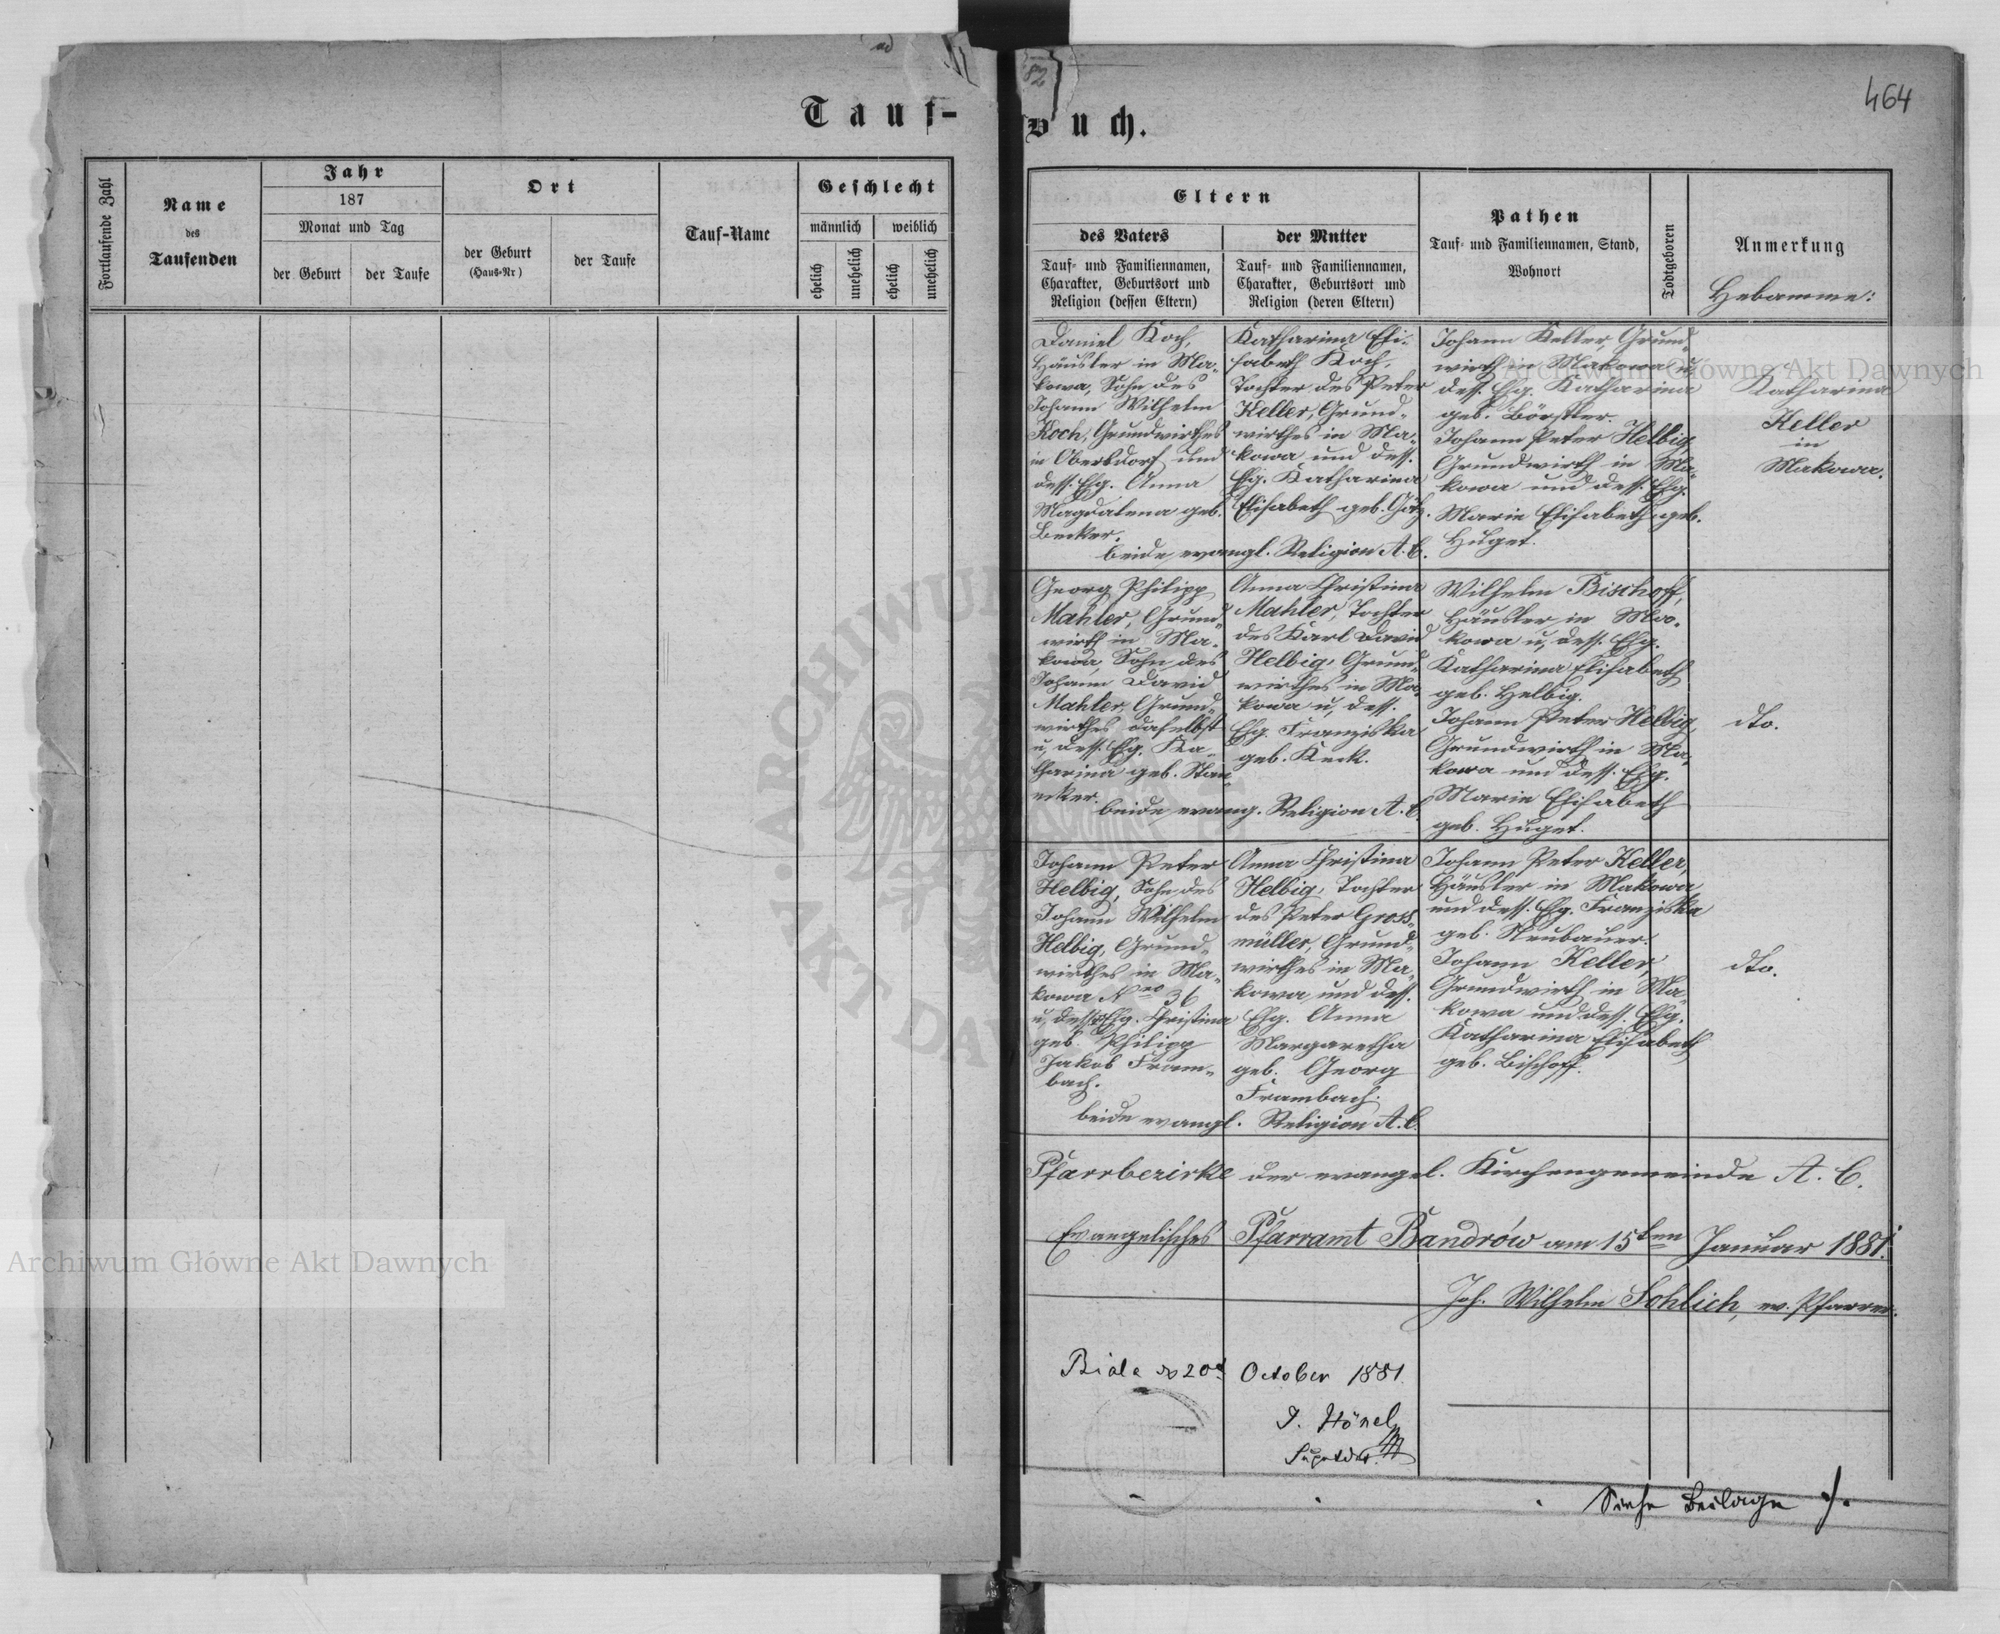 464
82
Tauf-
Buch.
Fortlaufende Zahl
Name
des
Taufenden
Jahr
187
Monat und Tag
der Geburt
der Taufe
Ort
der Geburt
(Haus-Nr)
der Taufe
Tauf-Name
Geschlecht
männlich
weiblich
ehelich
unehelich
ehelich
unehelich
Eltern
des Vaters
Tauf- und Familiennamen,
Charakter, Geburtsort und
Religion (dessen Eltern)
der Mutter
Tauf- und Familiennamen,
Charakter, Geburtsort und
Religion (deren Eltern)
Pathen
Tauf- und Familiennamen, Stand,
Wohnort
Todtgeboren
Anmerkung
Hebamme:
Daniel Koch,
Häusler in Ma-
kowa, Sohn des
Johann Wilhelm
Koch, Grundwirthes
in Obersdorf und
dess. Ehg. Anna
Magdalena geb.
Becker.
Katharina Eli-
sabeth Koch,
Tochter des Peter
Keller, Grund-
wirthes in Ma-
kowa und dess.
Ehg. Katharina
Elisabeth geb. Götz.
beide evangl. Religion A. C.
Johann Keller, Grund-
wirth in Makowa u.
dess. Ehg. Katharina
geb. Börstler.
Johann Peter Helbig
Grundwirth in Ma-
kowa und dess. Ehg.
Marie Elisabeth geb.
Huget.
Katharina
Keller
in
Makowa.
Georg Philipp
Mahler, Grund-
wirth in Ma-
kowa, Sohn des
Johann David
Mahler, Grund-
wirthes daselbst
u. dess. Ehg. Ka-
tharina geb. Stau-
ecker.
Anna Christina
Mahler, Tochter
des Karl David
Helbig, Grund-
wirthes in Ma-
kowa u. dess.
Ehg. Franziska
geb. Keck.
beide evang. Religion A. C.
Wilhelm Bischoff,
Häusler in Ma-
kowa u. dess. Ehg.
Katharina Elisabeth
geb. Helbig.
Johann Peter Helbig,
Grundwirth in Ma-
kowa und dess. Ehg.
Marie Elisabeth
geb. Huget.
dto.
Johann Peter
Helbig, Sohn des
Johann Wilhelm
Helbig, Grund-
wirthes in Ma-
kowa Nro 36
u. dess. Ehg. Christina
geb. Philipp
Jakob Fram-
bach.
Anna Christina
Helbig, Tochter
des Peter Gross-
müller, Grund-
wirthes in Ma-
kowa und dess.
Ehg. Anna
Margaretha
geb. Georg
Frambach.
beide evangl. Religion A. C.
Johann Peter Keller,
Häusler in Makowa
und dess. Ehg. Franziska
geb. Neubauer.
Johann Keller,
Grundwirth in Ma-
kowa und dess. Ehg.
Katharina Elisabeth
geb. Bischoff.
dto.
Pfarrbezirke der evangel. Kirchengemeinde A. C.
Evangelisches Pfarramt Bandrów am 15ten Januar 1881.
Joh. Wilhelm Sohlich, ev. Pfarrer.
Biala 20 October 1881.
J. Hönel
Siehe Beilage
Archiwum Główne Akt Dawnych
Archiwum Główne Akt Dawnych